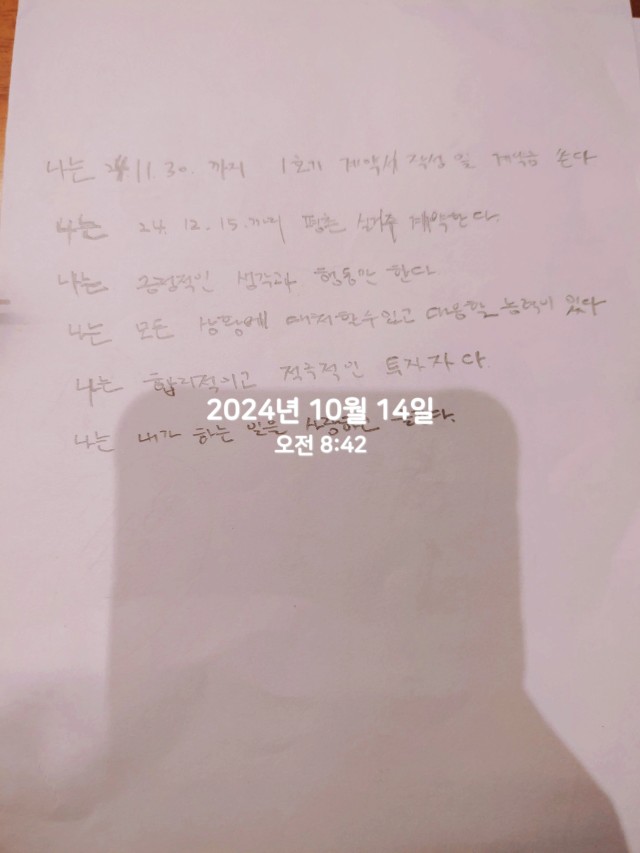 나는 24 11. 30. 까지 1호기 계약서 작성 및 계약금 쏜다
나는 24. 12. 15. 까지 평촌 실거주 계약한다.
나는 긍정적인 생각과 행동만 한다
나는 모든 상황에 대처할수있고 대응할 능력이 있다
나는 합리적이고 적극적인 투자자다.
2024년 10월 14일
나는 내가 하는 일을 사랑하고
오전 8:42